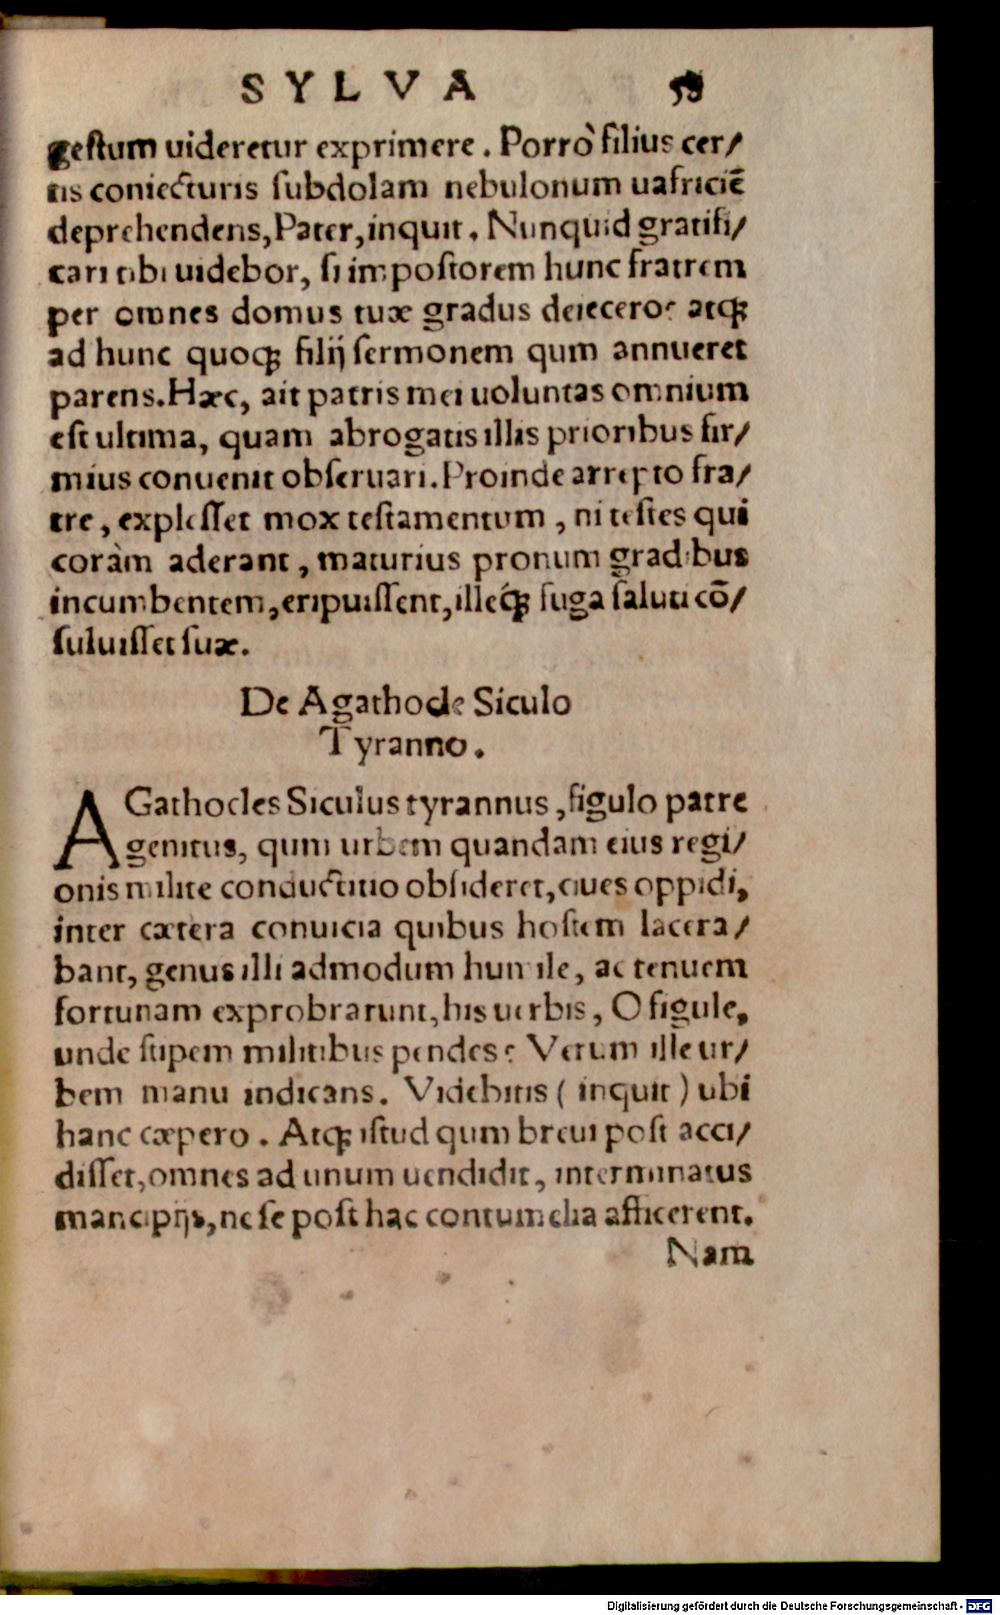 SYLVA 58
gestum uideretur exprimere. Porrò filius cer/
tis coniecturis subdolam nebulonum uafriciē
deprehendens, Pater, inquit. Nunquid gratifi/
cari tibi uidebor, si impostorem hunc fratrem
per omnes domus tuæ gradus deiecero? atq;
ad hunc quoq; filij sermonem qum annueret
parens. Hæc, ait patris mei uoluntas omnium
est ultima, quam abrogatis illis prioribus fir/
mius conuenit obseruari. Proinde arrepto fra/
tre, explesset mox testamentum, ni testes qui
coràm aderant, maturius pronum gradibus
incumbentem, eripuissent, illeq́; fuga saluti cō/
suluisset suæ.
De Agathocle Siculo
Tyranno.
AGathocles Siculus tyrannus, figulo patre
genitus, qum urbem quandam eius regi/
onis milite conductitio obsideret, ciues oppidi,
inter cætera conuicia quibus hostem lacera/
bant, genus illi admodum humile, ac tenuem
fortunam exprobrarunt, his uerbis, O figule,
unde stipem militibus pendes? Verum ille ur/
bem manu indicans. Videbitis (inquit) ubi
hanc cæpero. Atq; istud qum breui post acci/
disset, omnes ad unum uendidit, interminatus
mancipijs, ne se post hac contumelia afficerent.
Nam
Digitalisierung gefördert durch die Deutsche Forschungsgemeinschaft - DFG